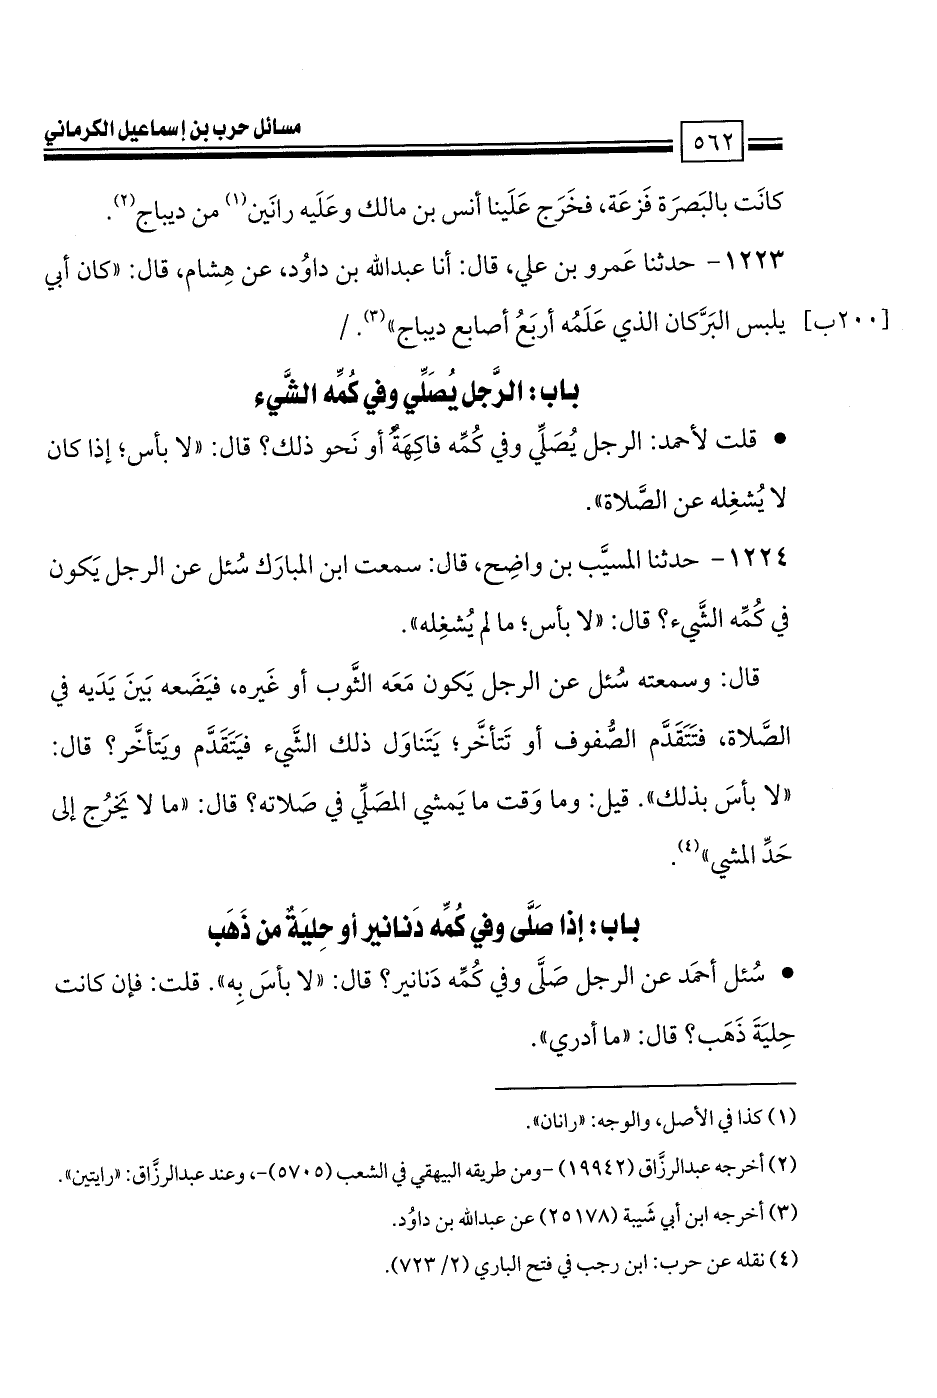 مسائل حرب بن إسماعيل الكرماني
٥٦٢
كانَت بالبَصرَة فَزعَة، فخَرَج عَلَينا أنس بن مالك وعَلَيه رانَين(١) من ديباج(٢).
١٢٢٣- حدثنا عَمرو بن علي، قال: أنا عبدالله بن داوُد، عن هِشام، قال: «كان أبي
يلبس البَرَّكان الذي عَلَمُه أربَعُ أصابع ديباج»(٣). /
[٢٠٠ب]
باب: الرَّجل يُصَلِّي وفي كُمِّه الشَّيء
● قلت لأحمد: الرجل يُصَلِّي وفي كُمِّه فاكِهَةٌ أو نَحو ذلك؟ قال: «لا بأس؛ إذا كان
لا يُشغِله عن الصَّلاة».
١٢٢٤- حدثنا المسيَّب بن واضِح، قال: سمعت ابن المبارَك سُئل عن الرجل يَكون
في كُمِّه الشَّيء؟ قال: «لا بأس؛ ما لم يُشغِله».
قال: وسمعته سُئل عن الرجل يَكون مَعَه الثَّوب أو غَيره، فيَضَعه بَينَ يَدَيه في
الصَّلاة، فتَتَقَدَّم الصُّفوف أو تَتأخَّر؛ يَتَناوَل ذلك الشَّيء فيَتَقَدَّم ويَتأخَّر؟ قال:
«لا بأسَ بذلك». قيل: وما وَقت ما يَمشي المصَلِّي في صَلاته؟ قال: «ما لا يَخرُج إلى
حَدِّ المشي»(٤).
باب: إذا صَلَّى وفي كُمِّه دَنانير أو حِليَةٌ من ذَهَب
● سُئل أحمَد عن الرجل صَلَّى وفي كُمِّه دَنانير؟ قال: «لا بأسَ بِه». قلت: فإن كانت
حِليَةَ ذَهَب؟ قال: «ما أدري».
(١) كذا في الأصل، والوجه: «رانان».
(٢) أخرجه عبدالرزَّاق (١٩٩٤٢) -ومن طريقه البيهقي في الشعب (٥٧٠٥)-، وعند عبدالرزَّاق: «رايتين».
(٣) أخرجه ابن أبي شَيبة (٢٥١٧٨) عن عبدالله بن داوُد.
(٤) نقله عن حرب: ابن رجب في فتح الباري (٢/ ٧٢٣).